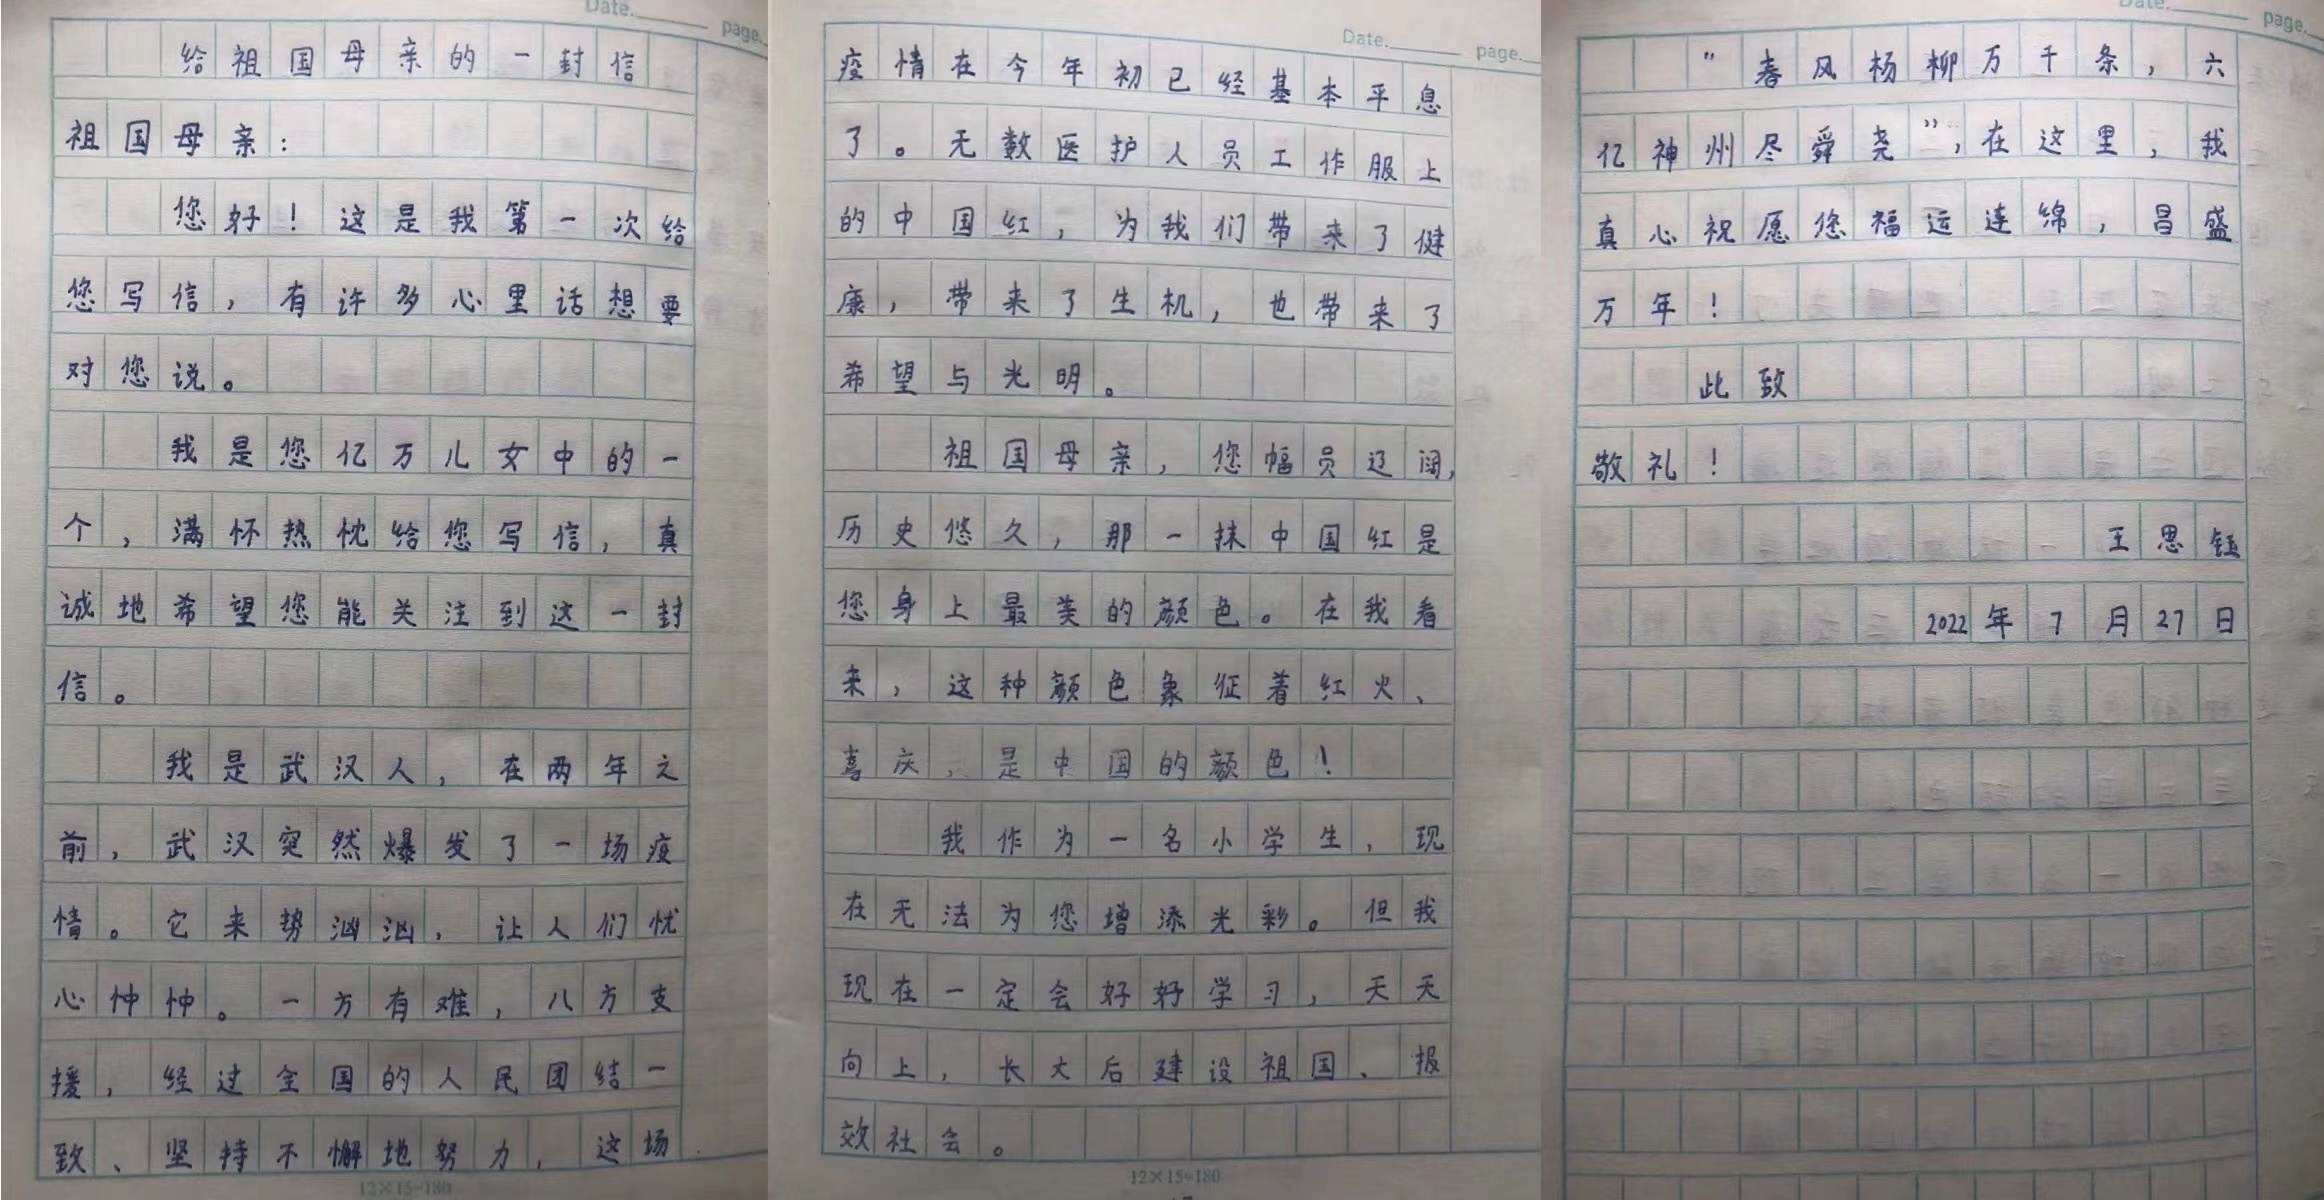 Date. page.
给祖国母亲的一封信
祖国母亲：
您好！这是我第一次给
您写信，有许多心里话想要
对您说。
我是您亿万儿女中的一
个，满怀热忱给您写信，真
诚地希望您能关注到这一封
信。
我是武汉人，在两年之
前，武汉突然爆发了一场疫
情。它来势汹汹，让人们忧
心忡忡。一方有难，八方支
援，经过全国的人民团结一
致、坚持不懈地努力，这场
12×15=180
Date. page.
疫情在今年初已经基本平息
了。无数医护人员工作服上
的中国红，为我们带来了健
康，带来了生机，也带来了
希望与光明。
祖国母亲，您幅员辽阔，
历史悠久，那一抹中国红是
您身上最美的颜色。在我看
来，这种颜色象征着红火、
喜庆，是中国的颜色！
我作为一名小学生，现
在无法为您增添光彩。但我
现在一定会好好学习，天天
向上，长大后建设祖国、报
效社会。
12×15=180
Date. page.
“春风杨柳万千条，六
亿神州尽舜尧”，在这里，我
真心祝愿您福运连绵，昌盛
万年！
此致
敬礼！
王思钰
2022年7月27日